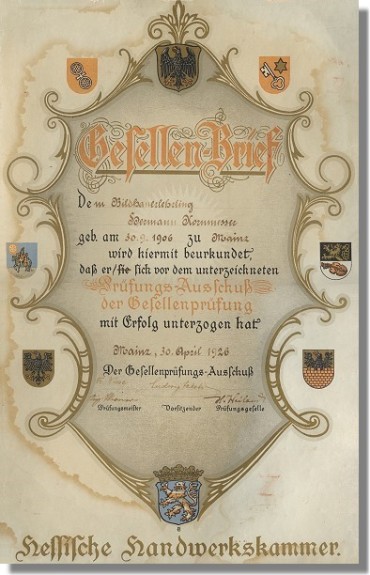 Gesellen-Brief
Dem Bildhauerlehrling
Hermann Kornmesser
geb. am 30.9. 1906 zu Mainz
wird hiermit beurkundet,
daß er/sie sich vor dem unterzeichneten
Prüfungs-Ausschuß
der Gesellenprüfung
mit Erfolg unterzogen hat
Mainz, 30. April 1926
Der Gesellenprüfungs-Ausschuß
Prüfungsmeister Vorsitzender Prüfungsgeselle
Hessische Handwerkskammer.